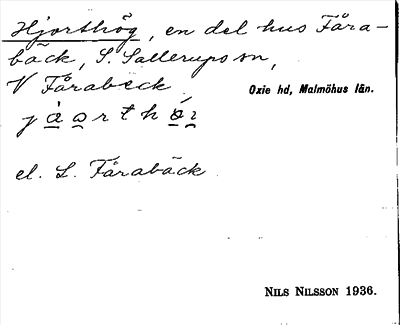 Hjorthög, en del hus Fåra-
bäck, S. Sallerups sn,
V Fårabäck. Oxie hd, Malmöhus län.
el. L. Fårabäck
NILS NILSSON 1936.